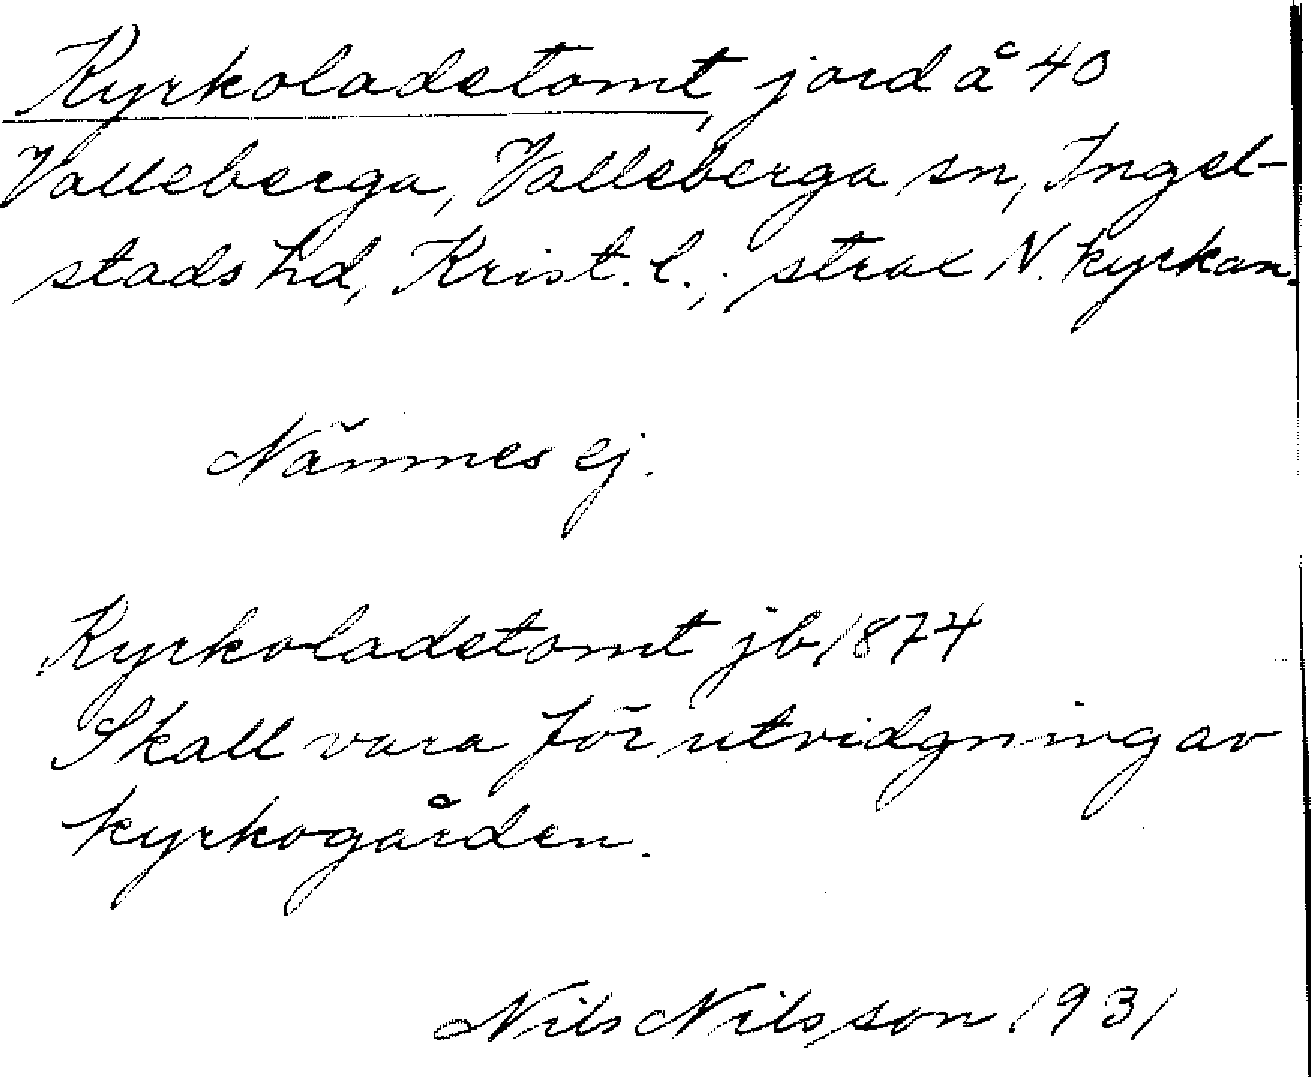 Kyrkoladstomt, jord å 40
Valleberga, Valleberga sn, Ingel-
stads hd, Krist. l.; strax N. kyrkan.
Nämnes ej.
Kyrkoladstomt jb 1874
Skall vara för utvidgning av
kyrkogården.
Nils Nilsson 1931